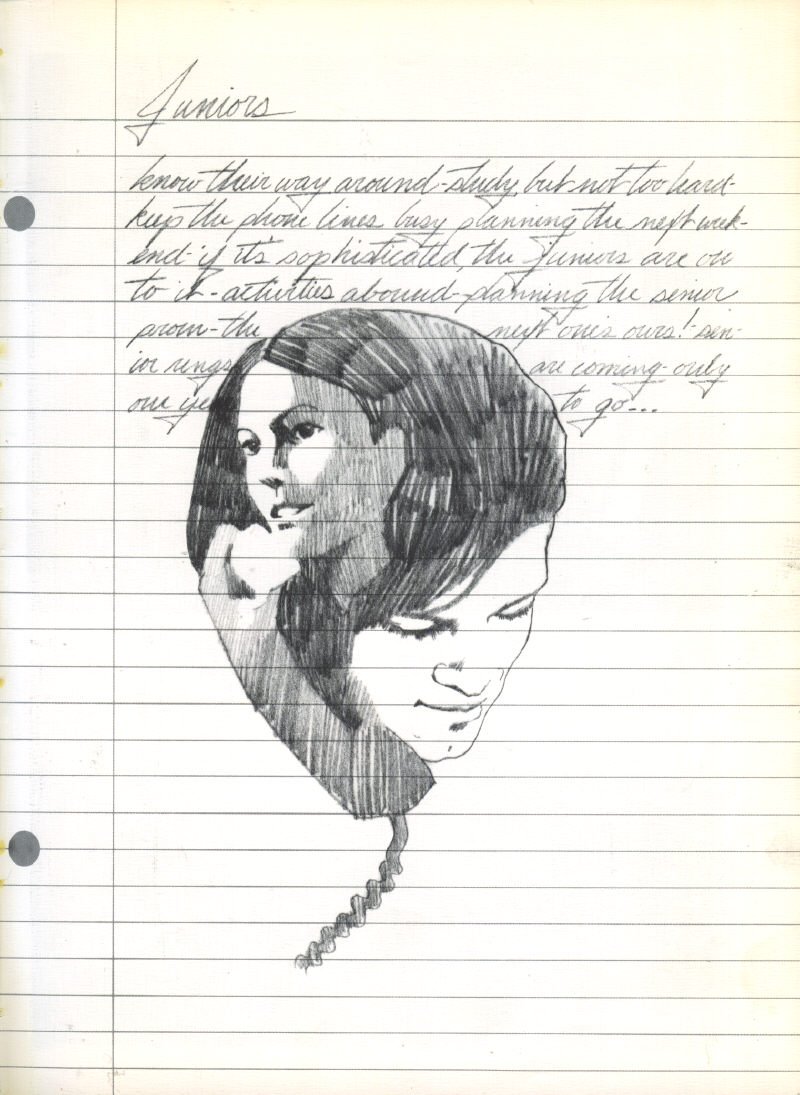 Juniors
know their way around-study but not too hard-
keep the phone lines busy planning the next week-
end-if it's sophisticated, the Juniors are on
to it-activities abound-planning the senior
prom-the next one's ours!-sen-
ior rings are coming-only
one ye to go...